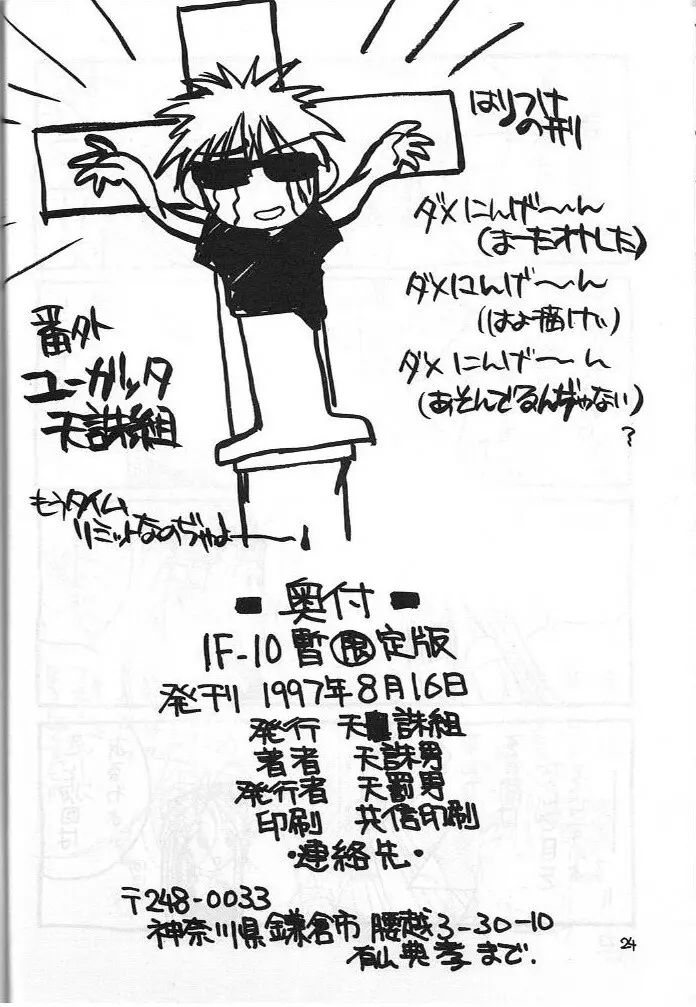 はりつけ
の刑
ダメにんげ〜〜ん
(まーたオトした)
ダメにんげ〜〜ん
(はよ描けい)
ダメにんげ〜〜ん
(あそんでるんぢゃない)
?
番外
ユーガッタ
天誅組
もうタイム
リミットなのぢゃよー――!
■ 奥付 ■
IF-10 暫限定版
発刊 1997年8月16日
発行 天誅組
著者 天誅男
発行者 天罰男
印刷 共信印刷
・連絡先・
〒248-0033
神奈川県鎌倉市 腰越3-30-10
有山典孝まで.
24